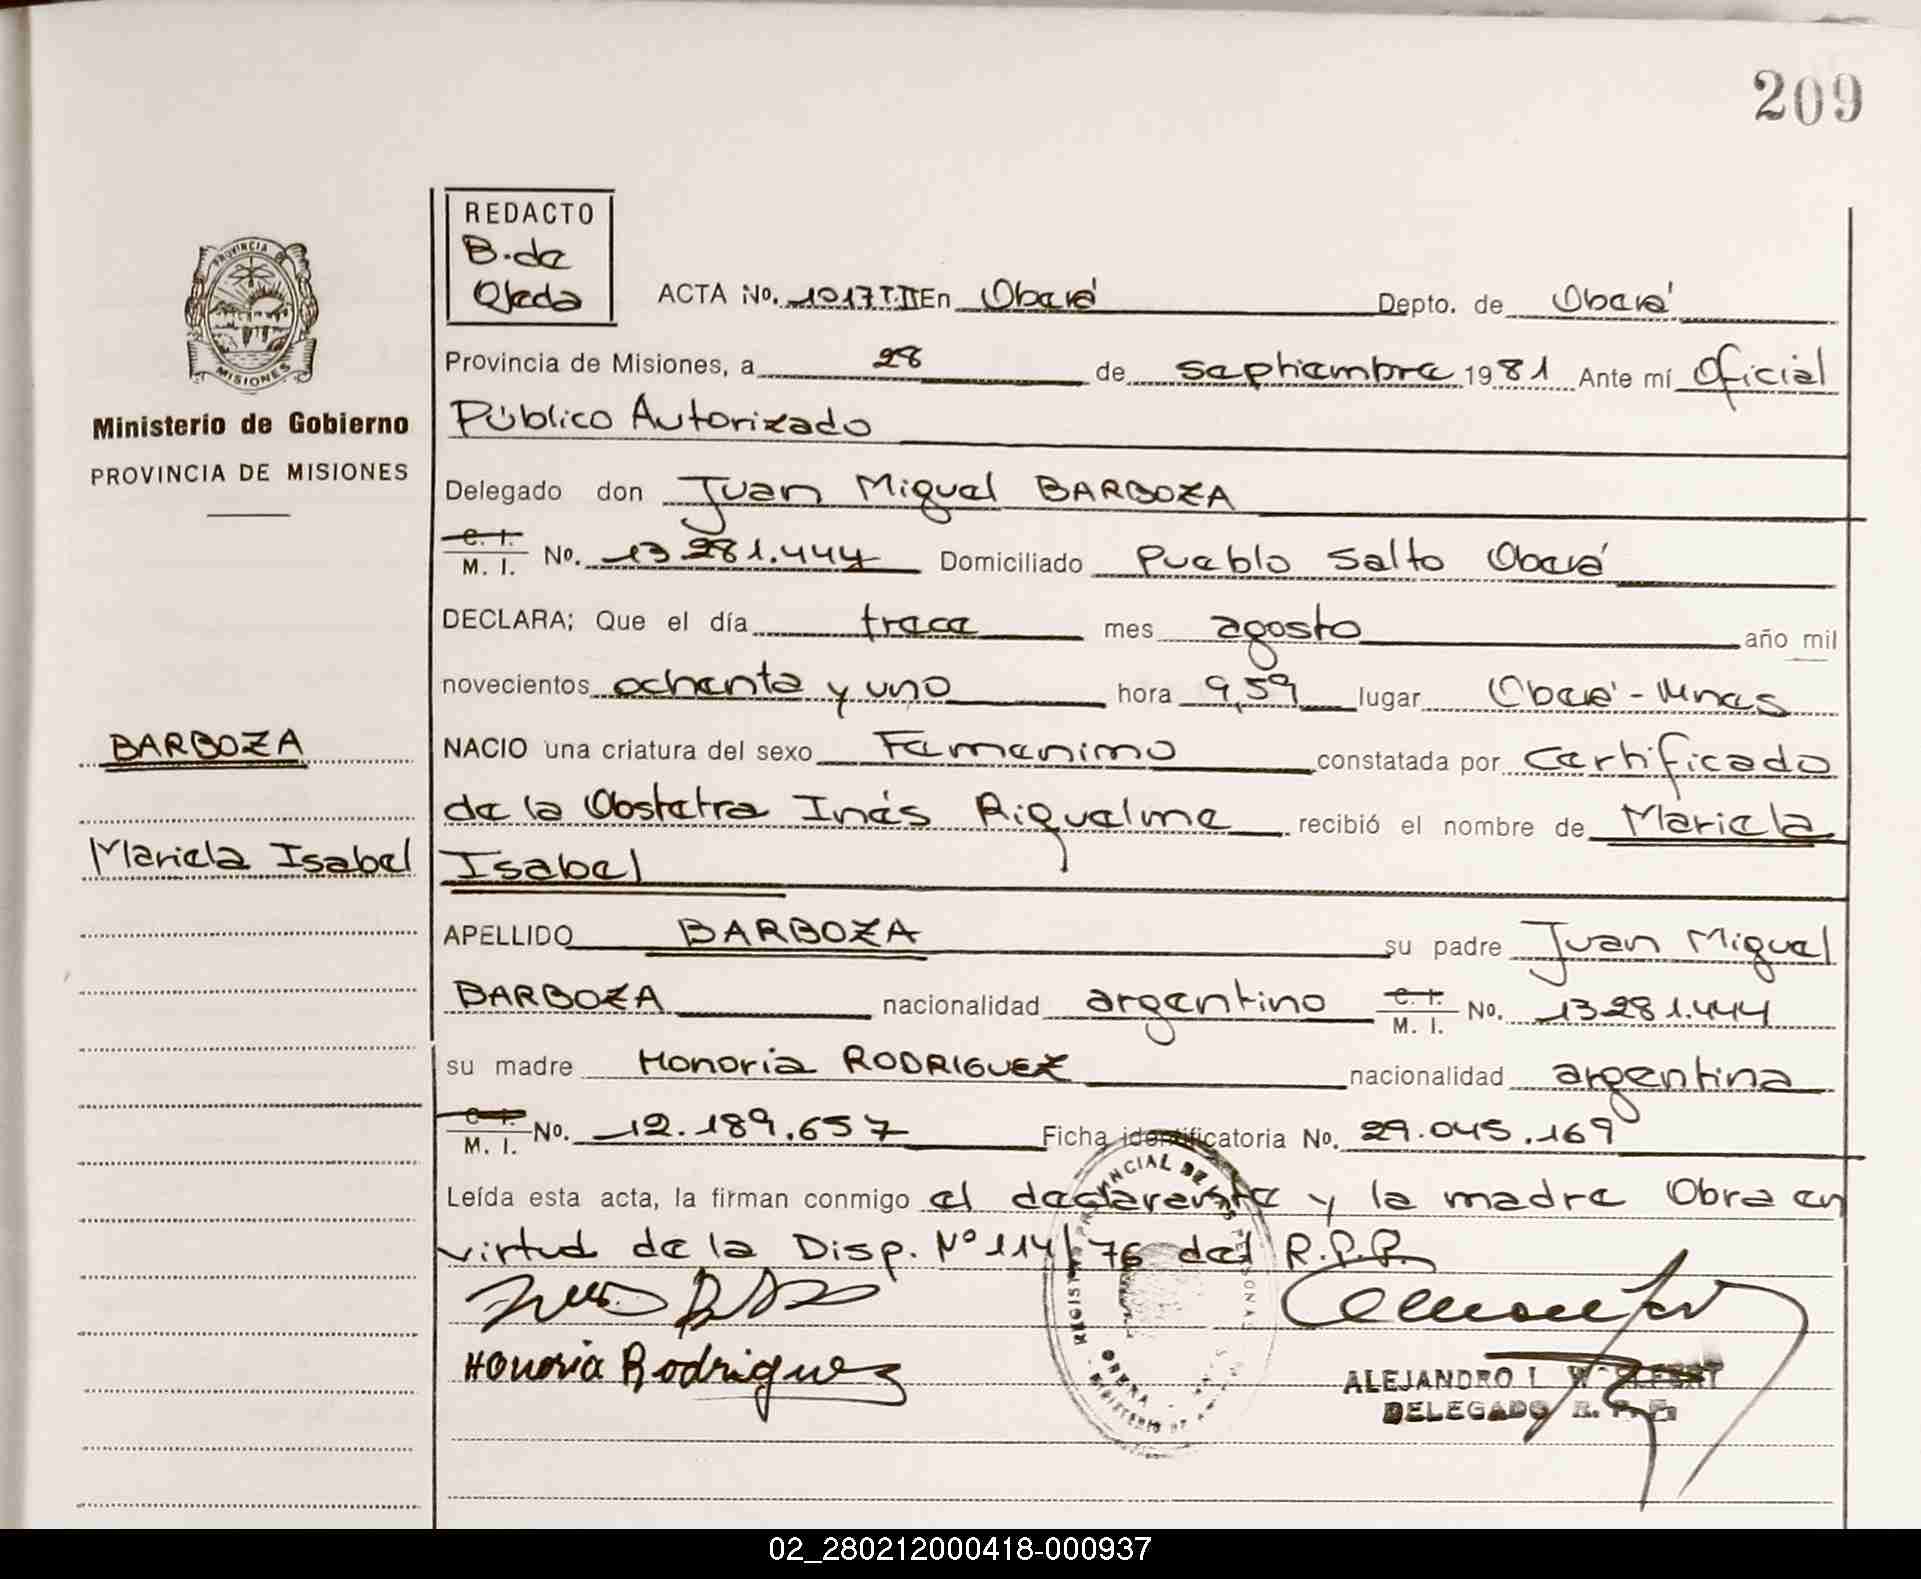 209
REDACTO
B. de
Ojeda
PROVINCIA DE
MISIONES
Ministerio de Gobierno
PROVINCIA DE MISIONES
ACTA No. 1017 T.II En Oberá Depto. de Oberá
Provincia de Misiones, a 28 de septiembre 1981 Ante mí Oficial
Público Autorizado
Delegado don Juan Miguel BARBOZA
C. I.
M. I. No. 13.281.444 Domiciliado Pueblo Salto Oberá
DECLARA; Que el día trece mes agosto año mil
novecientos ochenta y uno hora 9,59 lugar Oberá - Mnes
BARBOZA
NACIO una criatura del sexo Femenimo constatada por Certificado
de la Obstetra Inés Riquelme recibió el nombre de Mariela
Mariela Isabel
Isabel
APELLIDO BARBOZA su padre Juan Miguel
BARBOZA nacionalidad argentino C. I. M. I. No. 13.281.444
su madre Honoria RODRIGUEZ nacionalidad argentina
C. I.
M. I. No. 12.189.657 Ficha identificatoria No. 29.045.169
Leída esta acta, la firman conmigo el declarante y la madre Obra en
virtud de la Disp. Nº 114/76 del R.P.P.
Honoria Rodriguez
REGISTRO PROVINCIAL DE LAS PERSONAS
OBERA
MINISTERIO DE
ALEJANDRO I.
DELEGADO R. P. P.
02_280212000418-000937